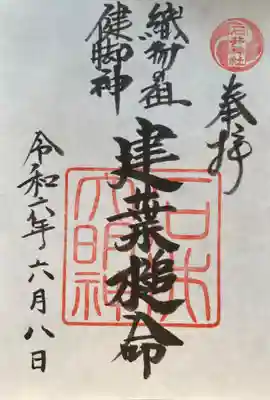 奉拝
織物祖
健脚神
建葉槌命
令和六年六月八日
大明神